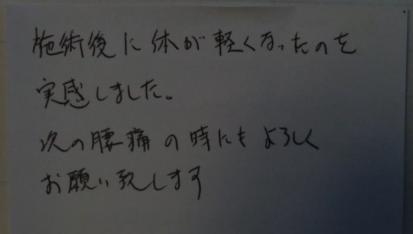 施術後に体が軽くなったのを
実感しました。
次の腰痛の時にもよろしく
お願い致します